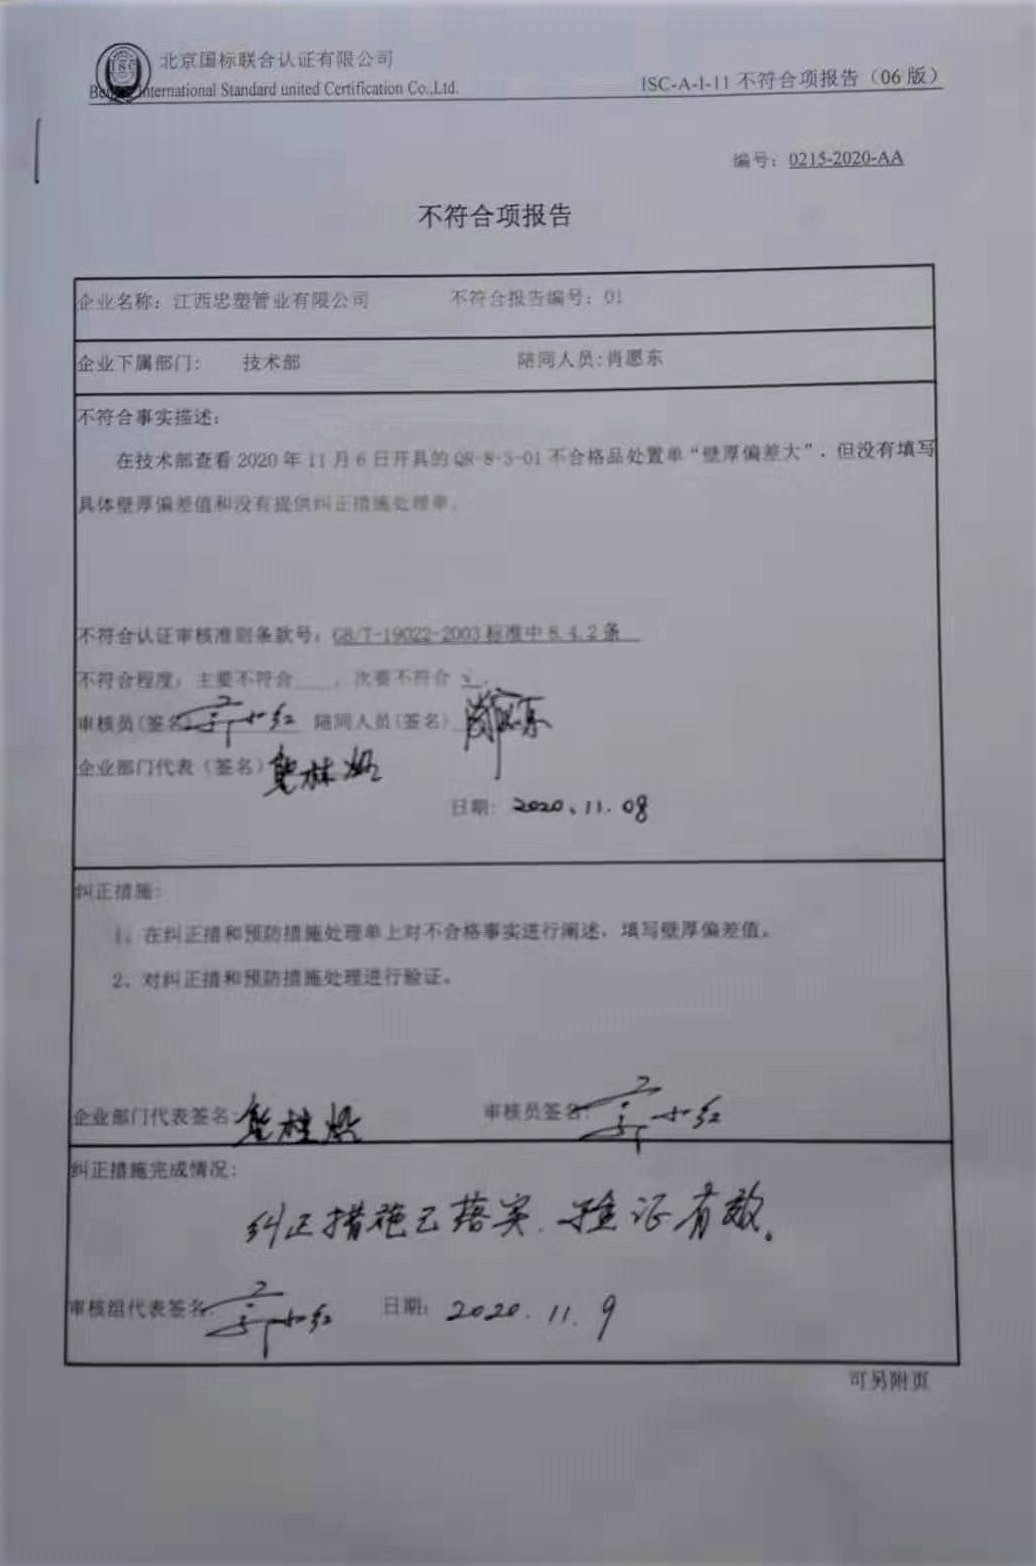 北京国标联合认证有限公司
Beijing International Standard united Certification Co.,Ltd.
ISC-A-I-11 不符合项报告（06 版）
编号：0215-2020-AA
不符合项报告
企业名称：江西忠塑管业有限公司 不符合报告编号：01
企业下属部门： 技术部 陪同人员:肖愿东
不符合事实描述：
在技术部查看 2020 年 11 月 6 日开具的 QR-8-3-01 不合格品处置单“壁厚偏差大”，但没有填写
具体壁厚偏差值和没有提供纠正措施处理单。
不符合认证审核准则条款号：GB/T-19022-2003 标准中 8.4.2 条
不符合程度：主要不符合____，次要不符合
审核员(签名) 陪同人员(签名)
企业部门代表（签名）
日期：2020.11.08
纠正措施：
1、在纠正措和预防措施处理单上对不合格事实进行阐述，填写壁厚偏差值。
2、对纠正措和预防措施处理进行验证。
企业部门代表签名： 审核员签名：
纠正措施完成情况：
纠正措施已落实，验证有效。
审核组代表签名： 日期：2020.11.9
可另附页